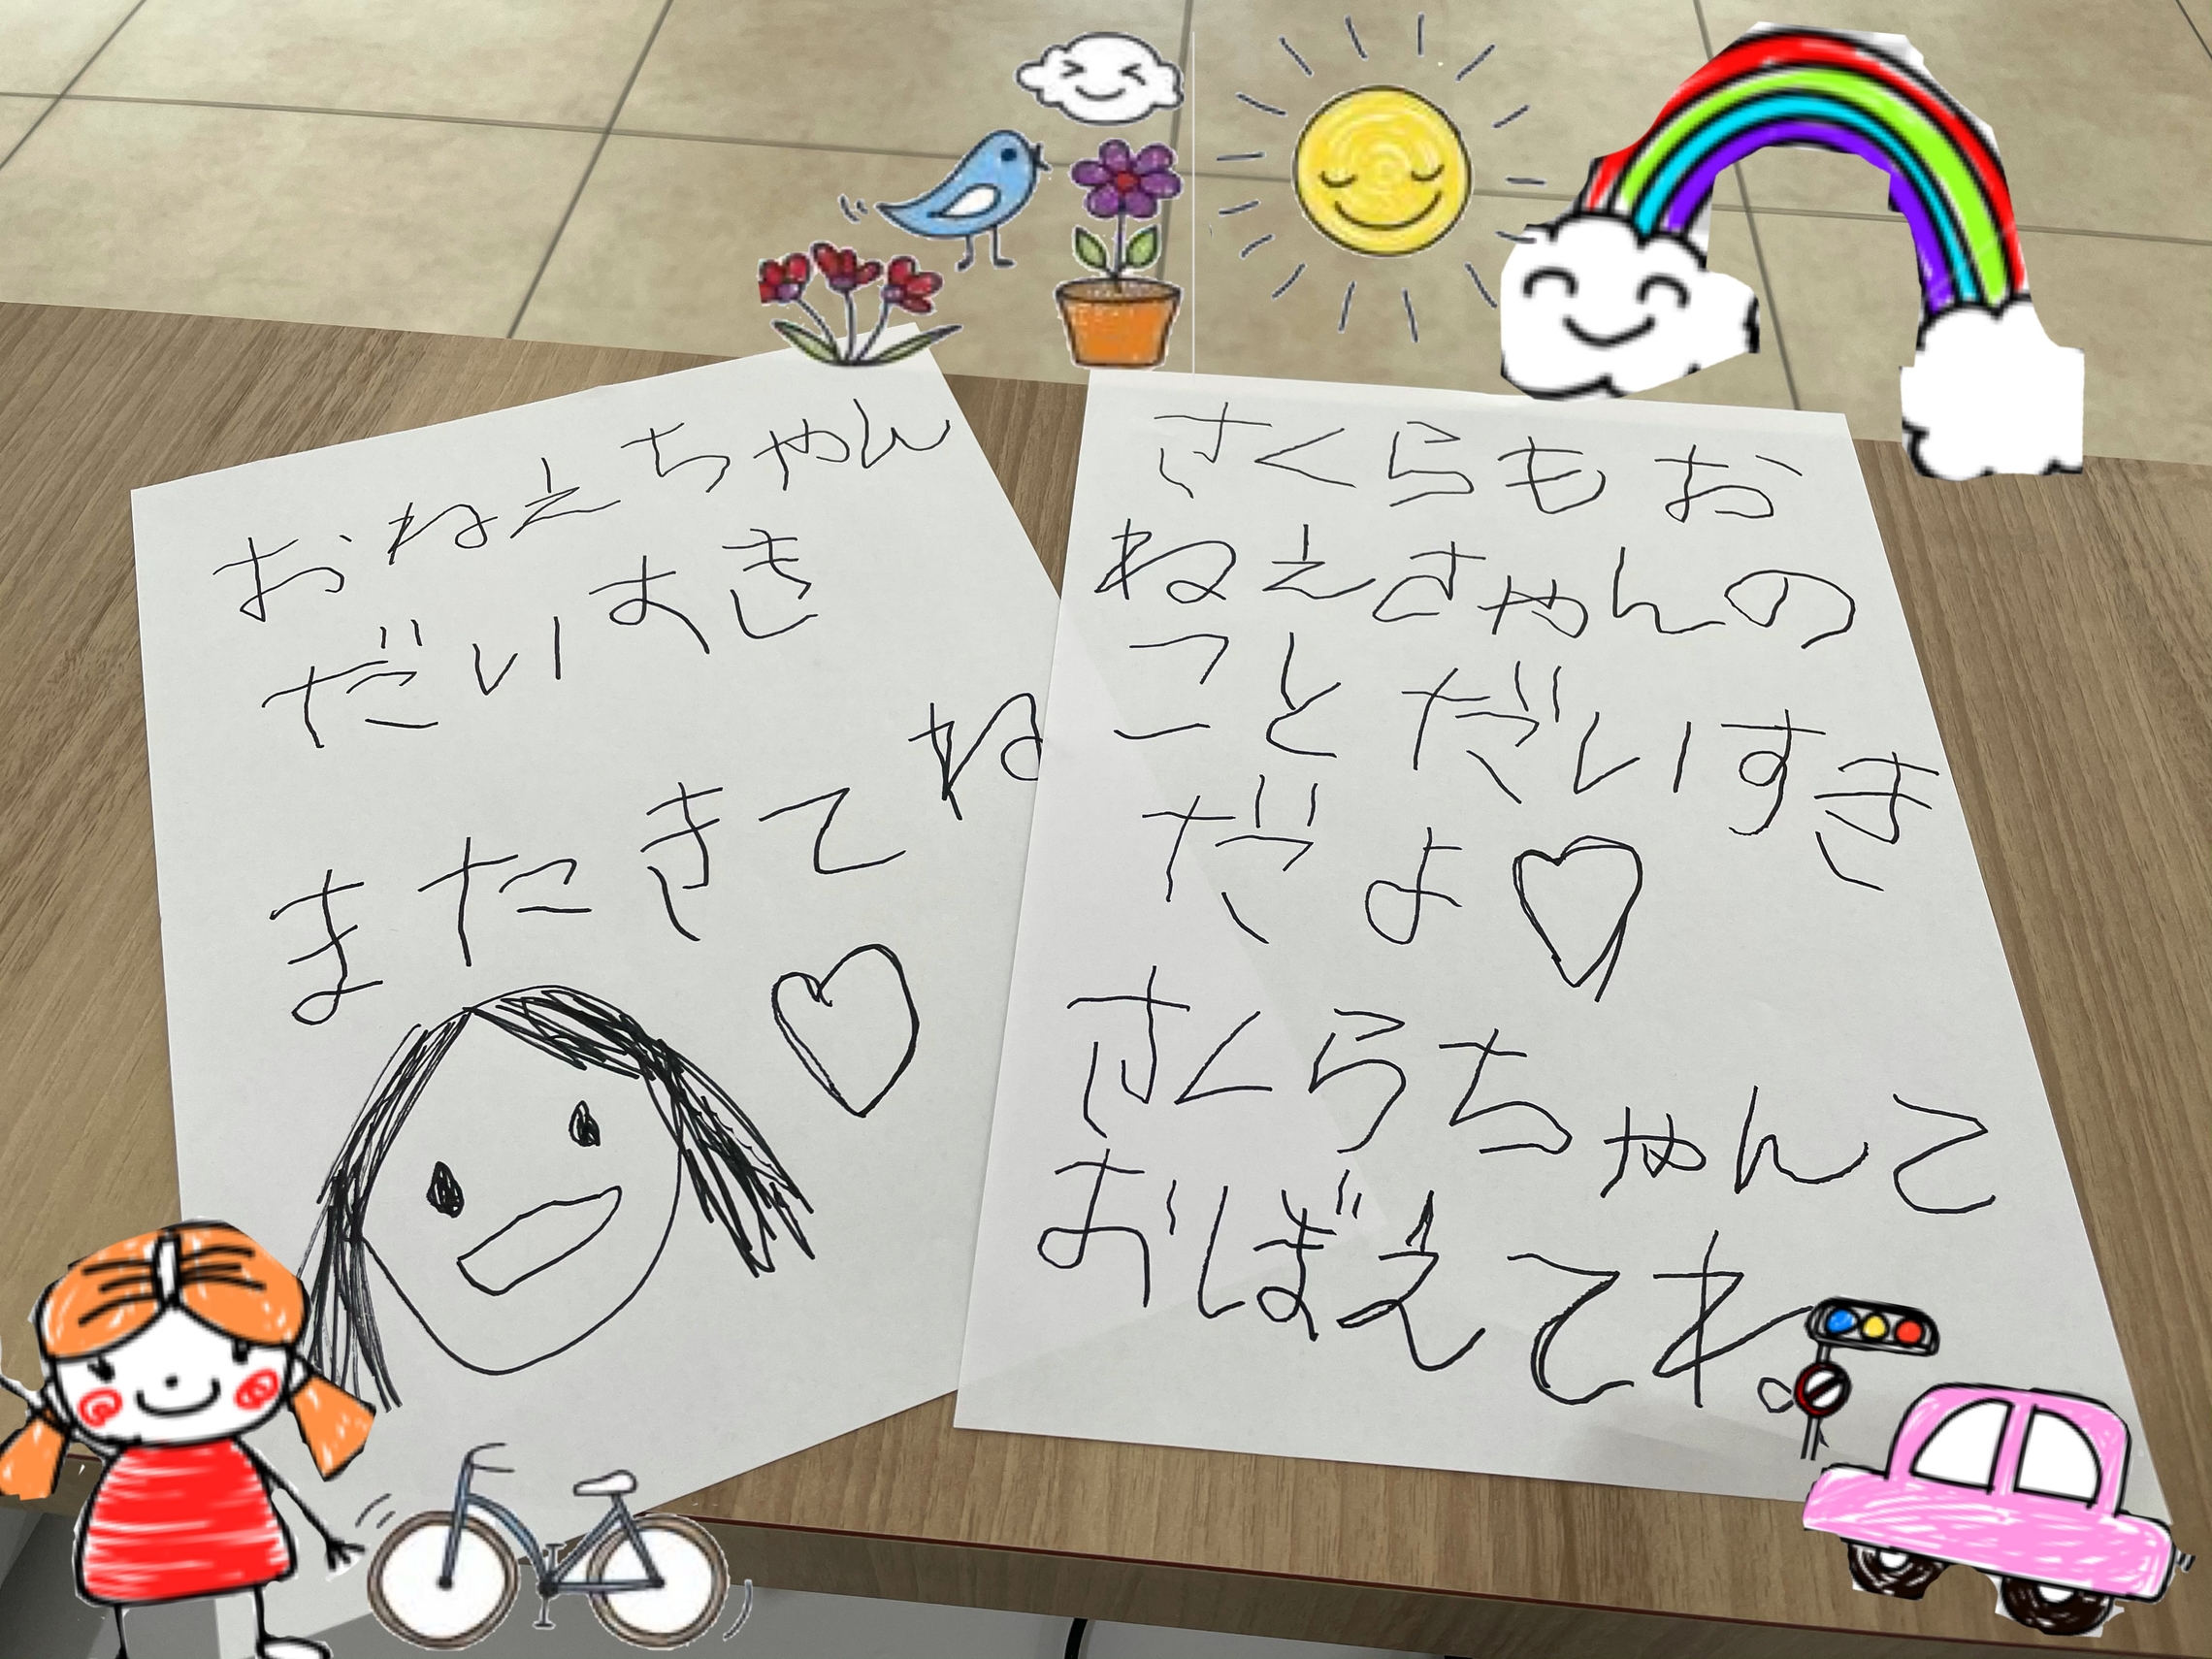 おねえちゃん
だいすき
またきてね
さくらもお
ねえちゃんの
ことだいすき
だよ
さくらちゃんて
おぼえてね。